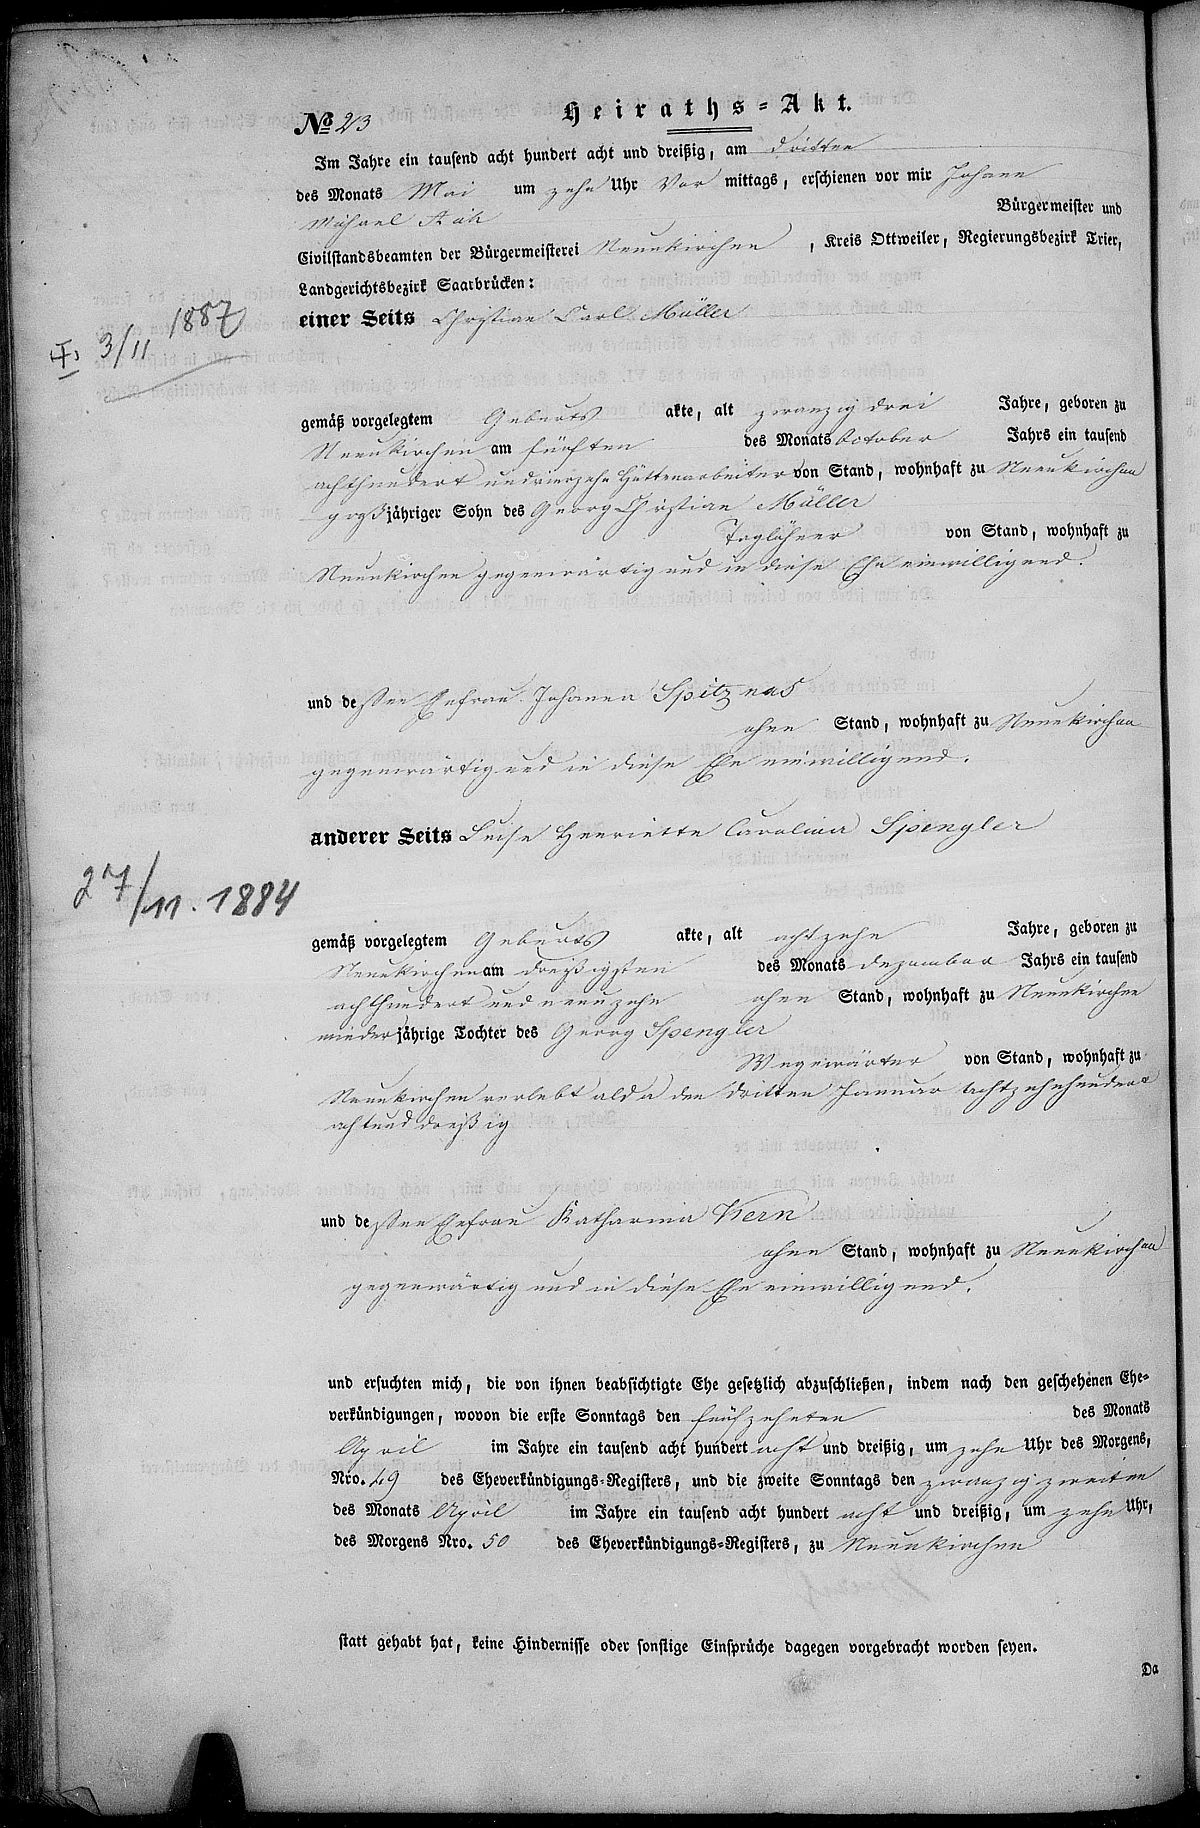 Heiraths-Akt.
No 23
Im Jahre ein tausend acht hundert acht und dreißig, am dritten
des Monats Mai um zehn Uhr Vor mittags, erschienen vor mir Johann
Michael Bürgermeister und
Civilstandsbeamten der Bürgermeisterei Neunkirchen, Kreis Ottweiler, Regierungsbezirk Trier,
Landgerichtsbezirk Saarbrücken:
einer Seits Christian Carl Müller
3/11 1887
gemäß vorgelegtem Geburts akte, alt zwanzig drei Jahre, geboren zu
Neunkirchen am fünften des Monats October Jahrs ein tausend
achthundert undvierzehn Hüttenarbeiter von Stand, wohnhaft zu Neunkirchen
großjähriger Sohn des Georg Christian Müller
Taglöhner von Stand, wohnhaft zu
Neunkirchen gegenwärtig und in diese Ehe einwilligend.
und dessen Ehefrau Johanna Spitznas
ohne Stand, wohnhaft zu Neunkirchen
gegenwärtig und in diese Ehe einwilligend.
anderer Seits Luise Henriette Carolina Spengler
27/11. 1884
gemäß vorgelegtem Geburts akte, alt achtzehn Jahre, geboren zu
Neunkirchen am dreißigsten des Monats Dezember Jahrs ein tausend
achthundert und neunzehn ohne Stand, wohnhaft zu Neunkirchen
minderjährige Tochter des Georg Spengler
Wegewärter von Stand, wohnhaft zu
Neunkirchen verlebt alda den dritten Januar achtzehnhundert
achtund dreißig
und dessen Ehefrau Katharina Kern
ohne Stand, wohnhaft zu Neunkirchen
gegenwärtig und in diese Ehe einwilligend.
und ersuchten mich, die von ihnen beabsichtigte Ehe gesetzlich abzuschließen, indem nach den geschehenen Ehe-
verkündigungen, wovon die erste Sonntags den fünfzehnten des Monats
April im Jahre ein tausend acht hundert acht und dreißig, um zehn Uhr des Morgens,
Nro. 49 des Eheverkündigungs-Registers, und die zweite Sonntags den zwanzig zweiten
des Monats April im Jahre ein tausend acht hundert acht und dreißig, um zehn Uhr,
des Morgens Nro. 50 des Eheverkündigungs-Registers, zu Neunkirchen
statt gehabt hat, keine Hindernisse oder sonstige Einsprüche dagegen vorgebracht worden seyen.
Da